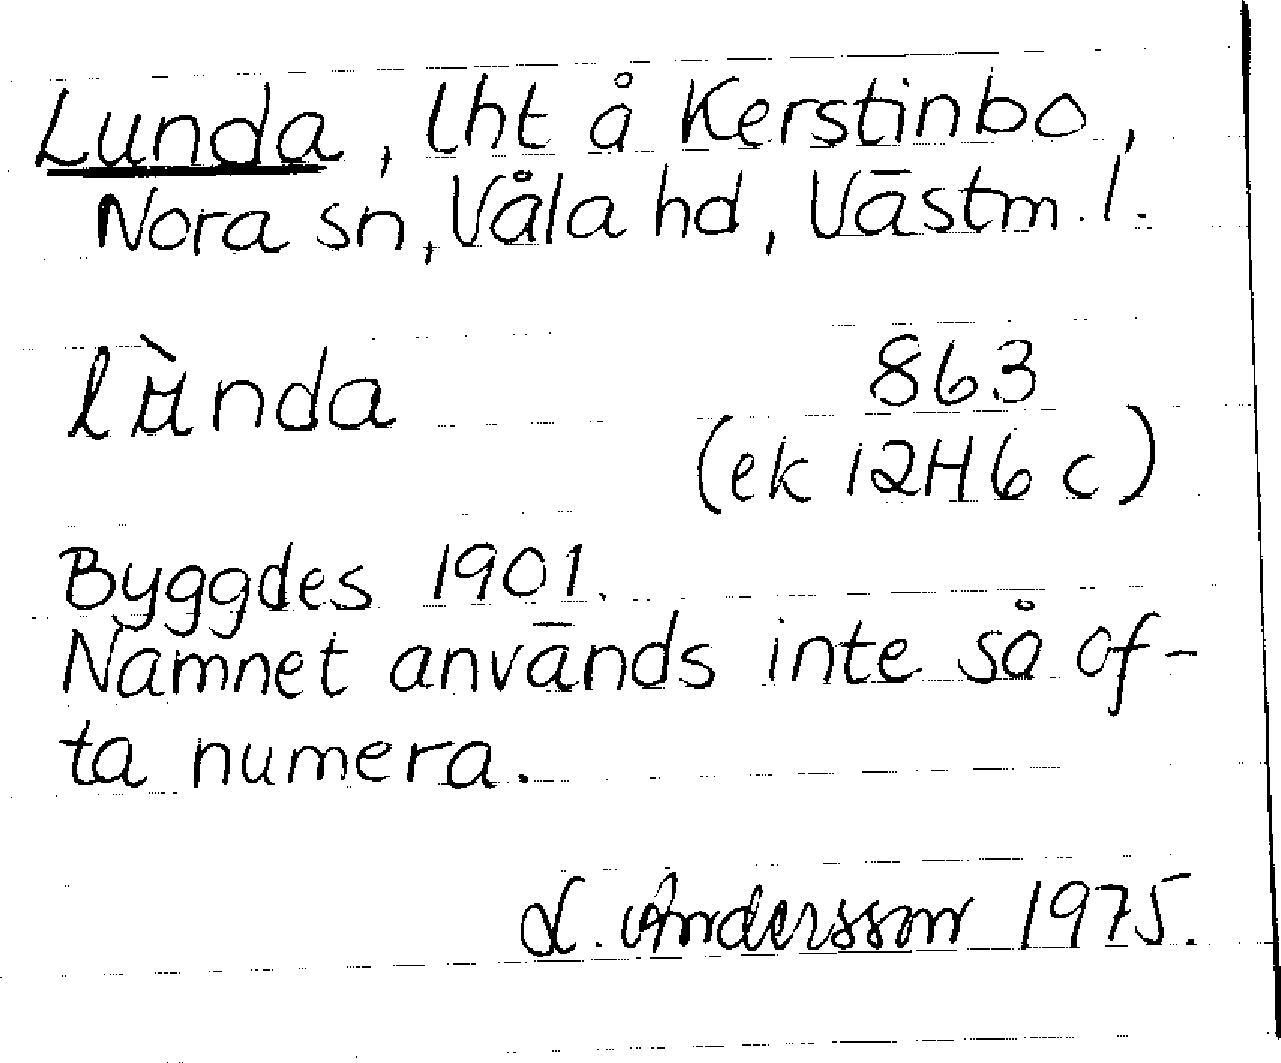 Lunda, lht å Kerstinbo,
Nora sn, Våla hd, Västm. l.
lùnda 863
(ek 12H6c)
Byggdes 1901.
Namnet används inte så of-
ta numera.
L. Andersson 1975.